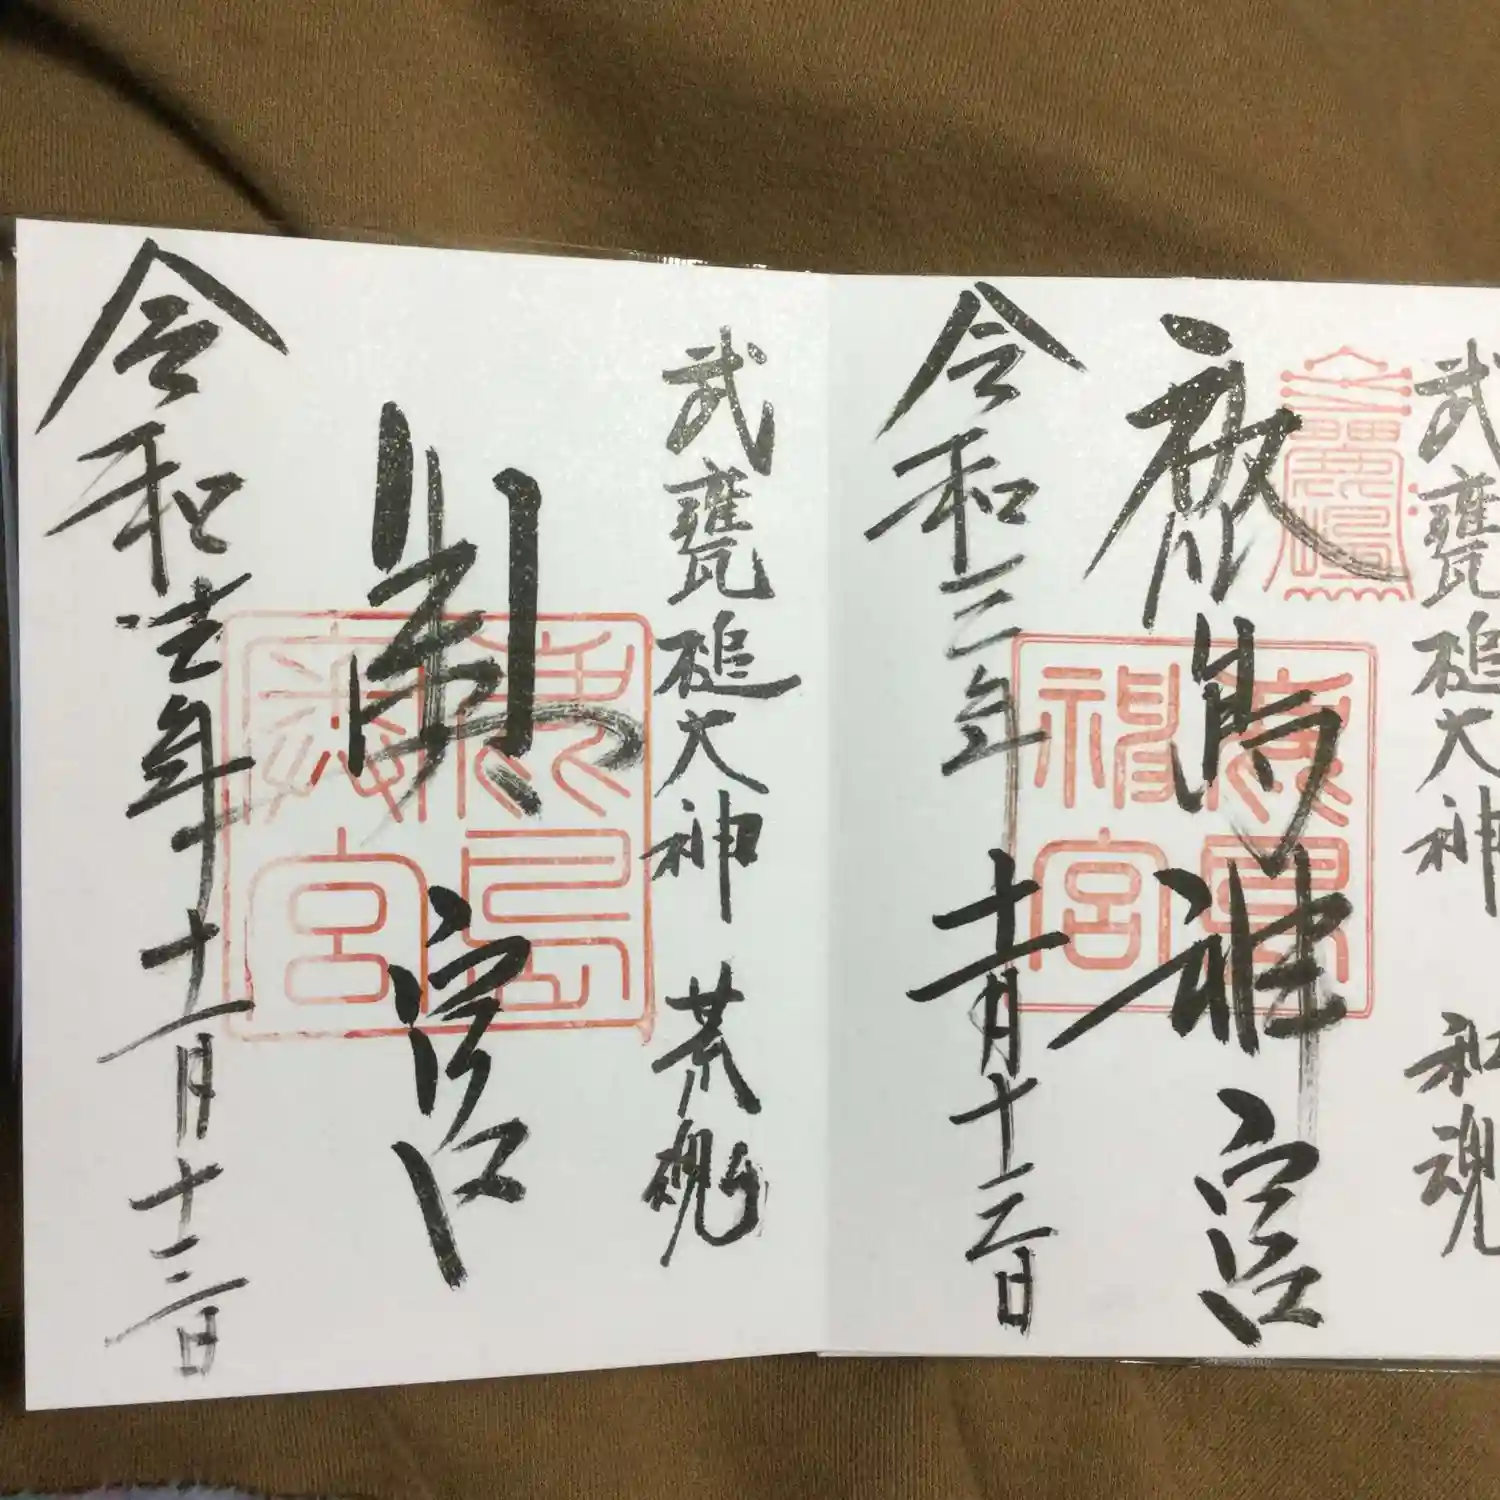 武甕槌大神 和魂
鹿島神宮
令和三年十一月十三日
鹿島神宮
武甕槌大神 荒魂
奥宮
令和三年十一月十三日
鹿島奥宮